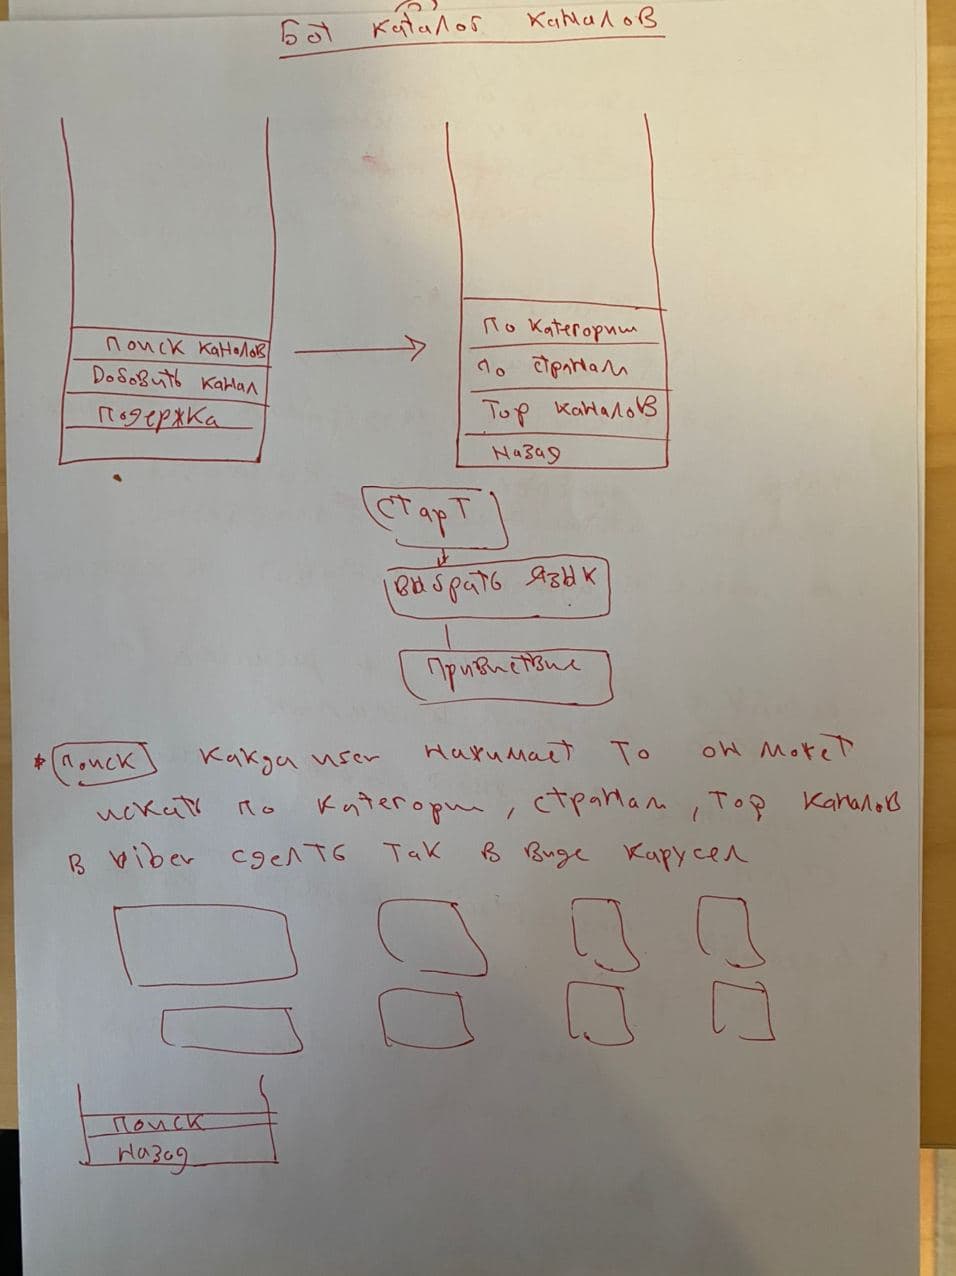 Бот каталог каналов
Поиск каналов
Добовить канал
Подержка
По категории
по странам
Top каналов
Назад
Старт
Выбрать язык
Привиетвие
* Поиск какда user нажимает то он может
искать по категории, странам, Top каналов
в viber сделть так в виде карусел
Поиск
Назад